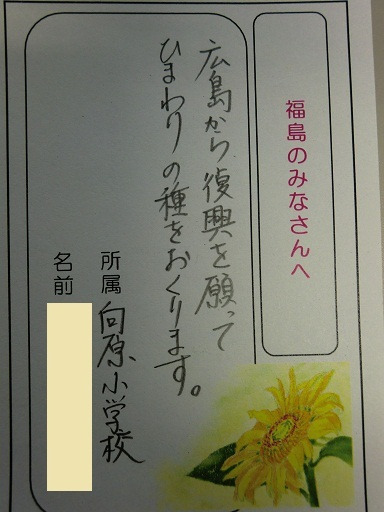 福島のみなさんへ
広島から復興を願って
ひまわりの種をおくります。
所属 向原小学校
名前